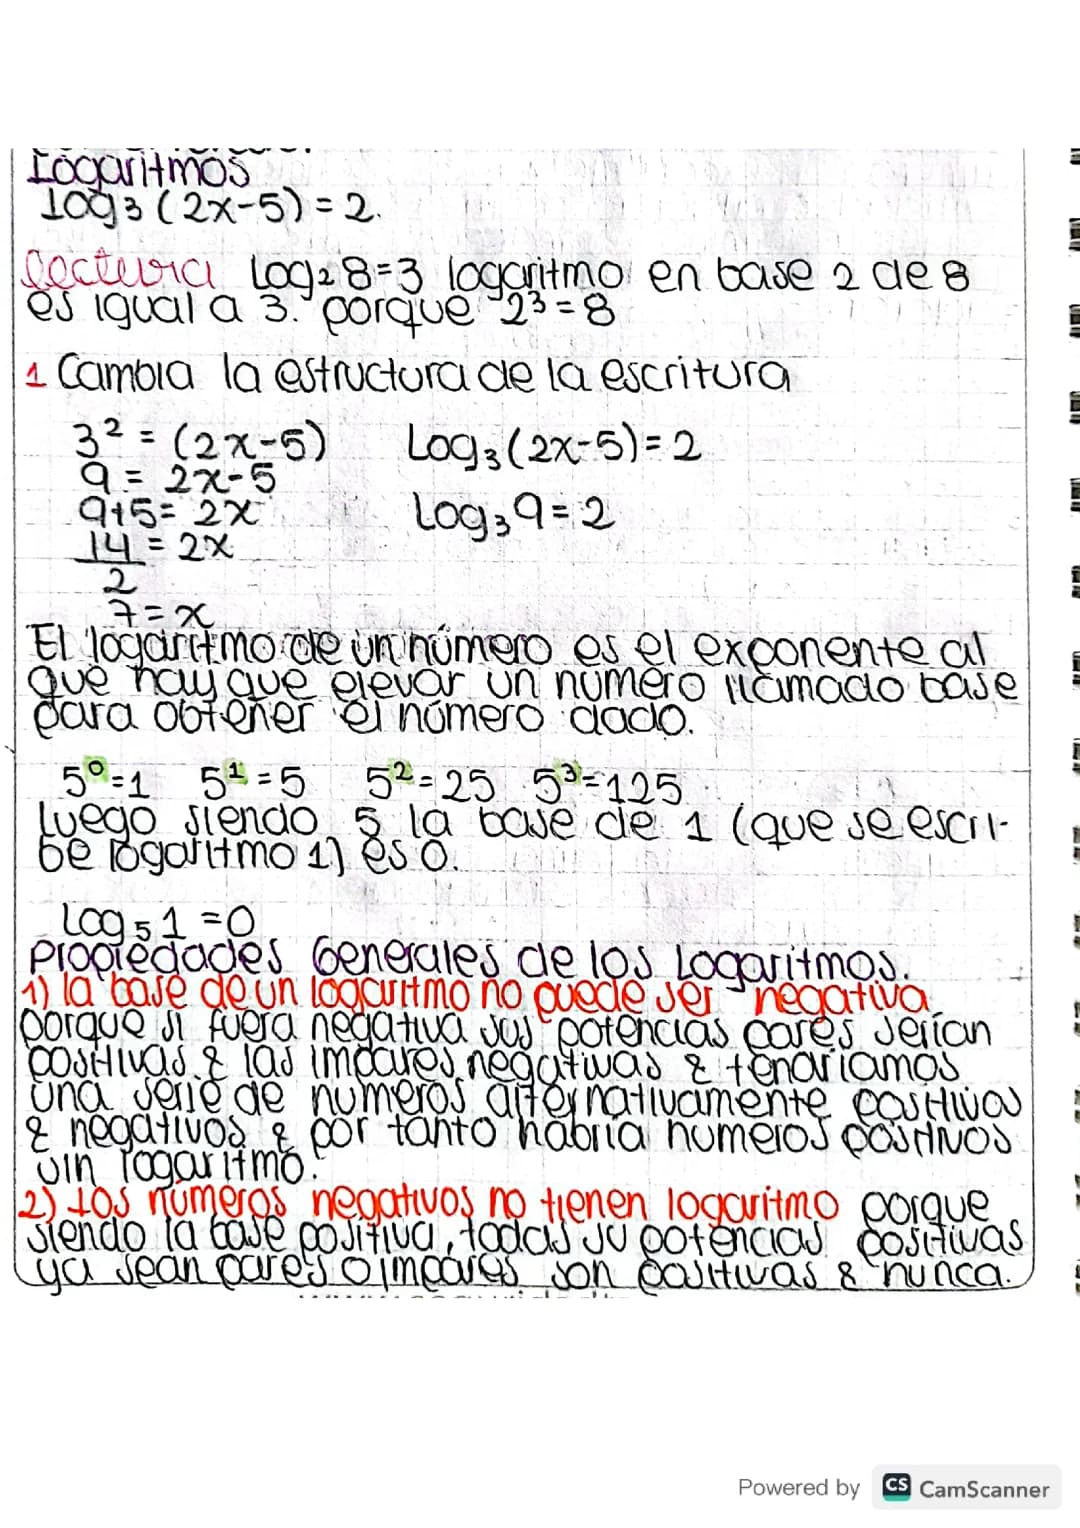 Logaritmos
log₃(2x-5)=2.
lectura log₂8=3 logaritmo en base 2 de 8
es igual a 3. porque 2³=8
1 Cambia la estructura de la escritura
3² = (2x-5) Log₃(2x-5)=2
9 = 2x-5
9+5= 2x Log₃9=2
14 = 2x
2
7=x
El logaritmo de un número es el exponente al
que hay que elevar un número llamado base
para obtener el número dado.
5⁰=1 5¹=5 5²=25 5³=125
luego siendo 5 la base de 1 (que se escri-
be logaritmo 1) es 0.
Log₅1=0
Propiedades Generales de los Logaritmos.
1) la base de un logaritmo no puede ser negativa
porque si fuera negativa sus potencias pares serian
positivas & las impares negativas & tendriamos
una serie de numeros alternativamente positivos
& negativos & por tanto habria numeros positivos
sin logaritmo.
2) los números negativos no tienen logaritmo porque
siendo la base positiva, todas su potencias positivas
ya sean pares o impares son positivas & nunca.
Powered by CS CamScanner